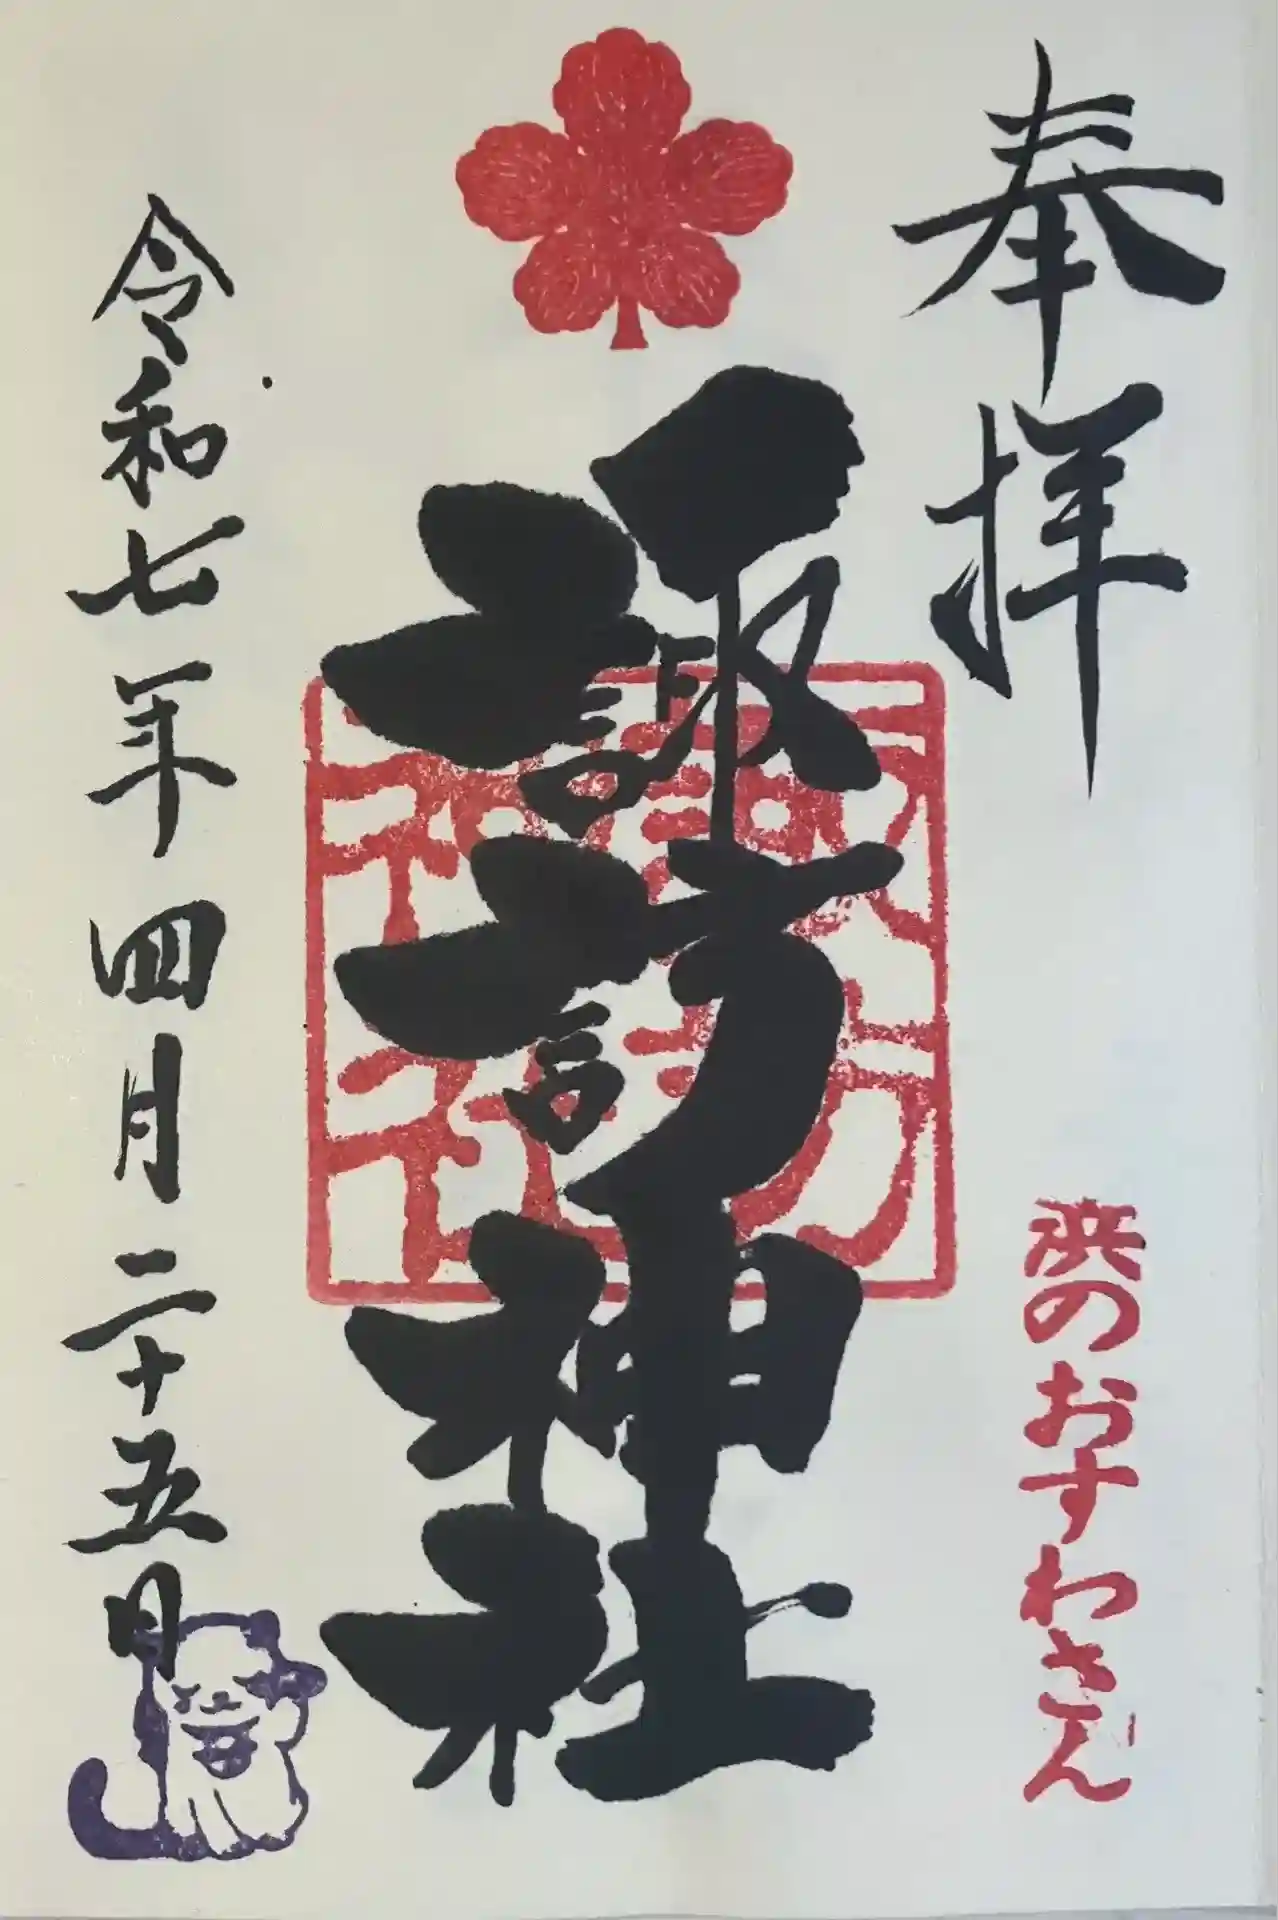 奉拝
浜のおすわさん
諏訪神社
諏訪
神社
令和七年四月二十五日